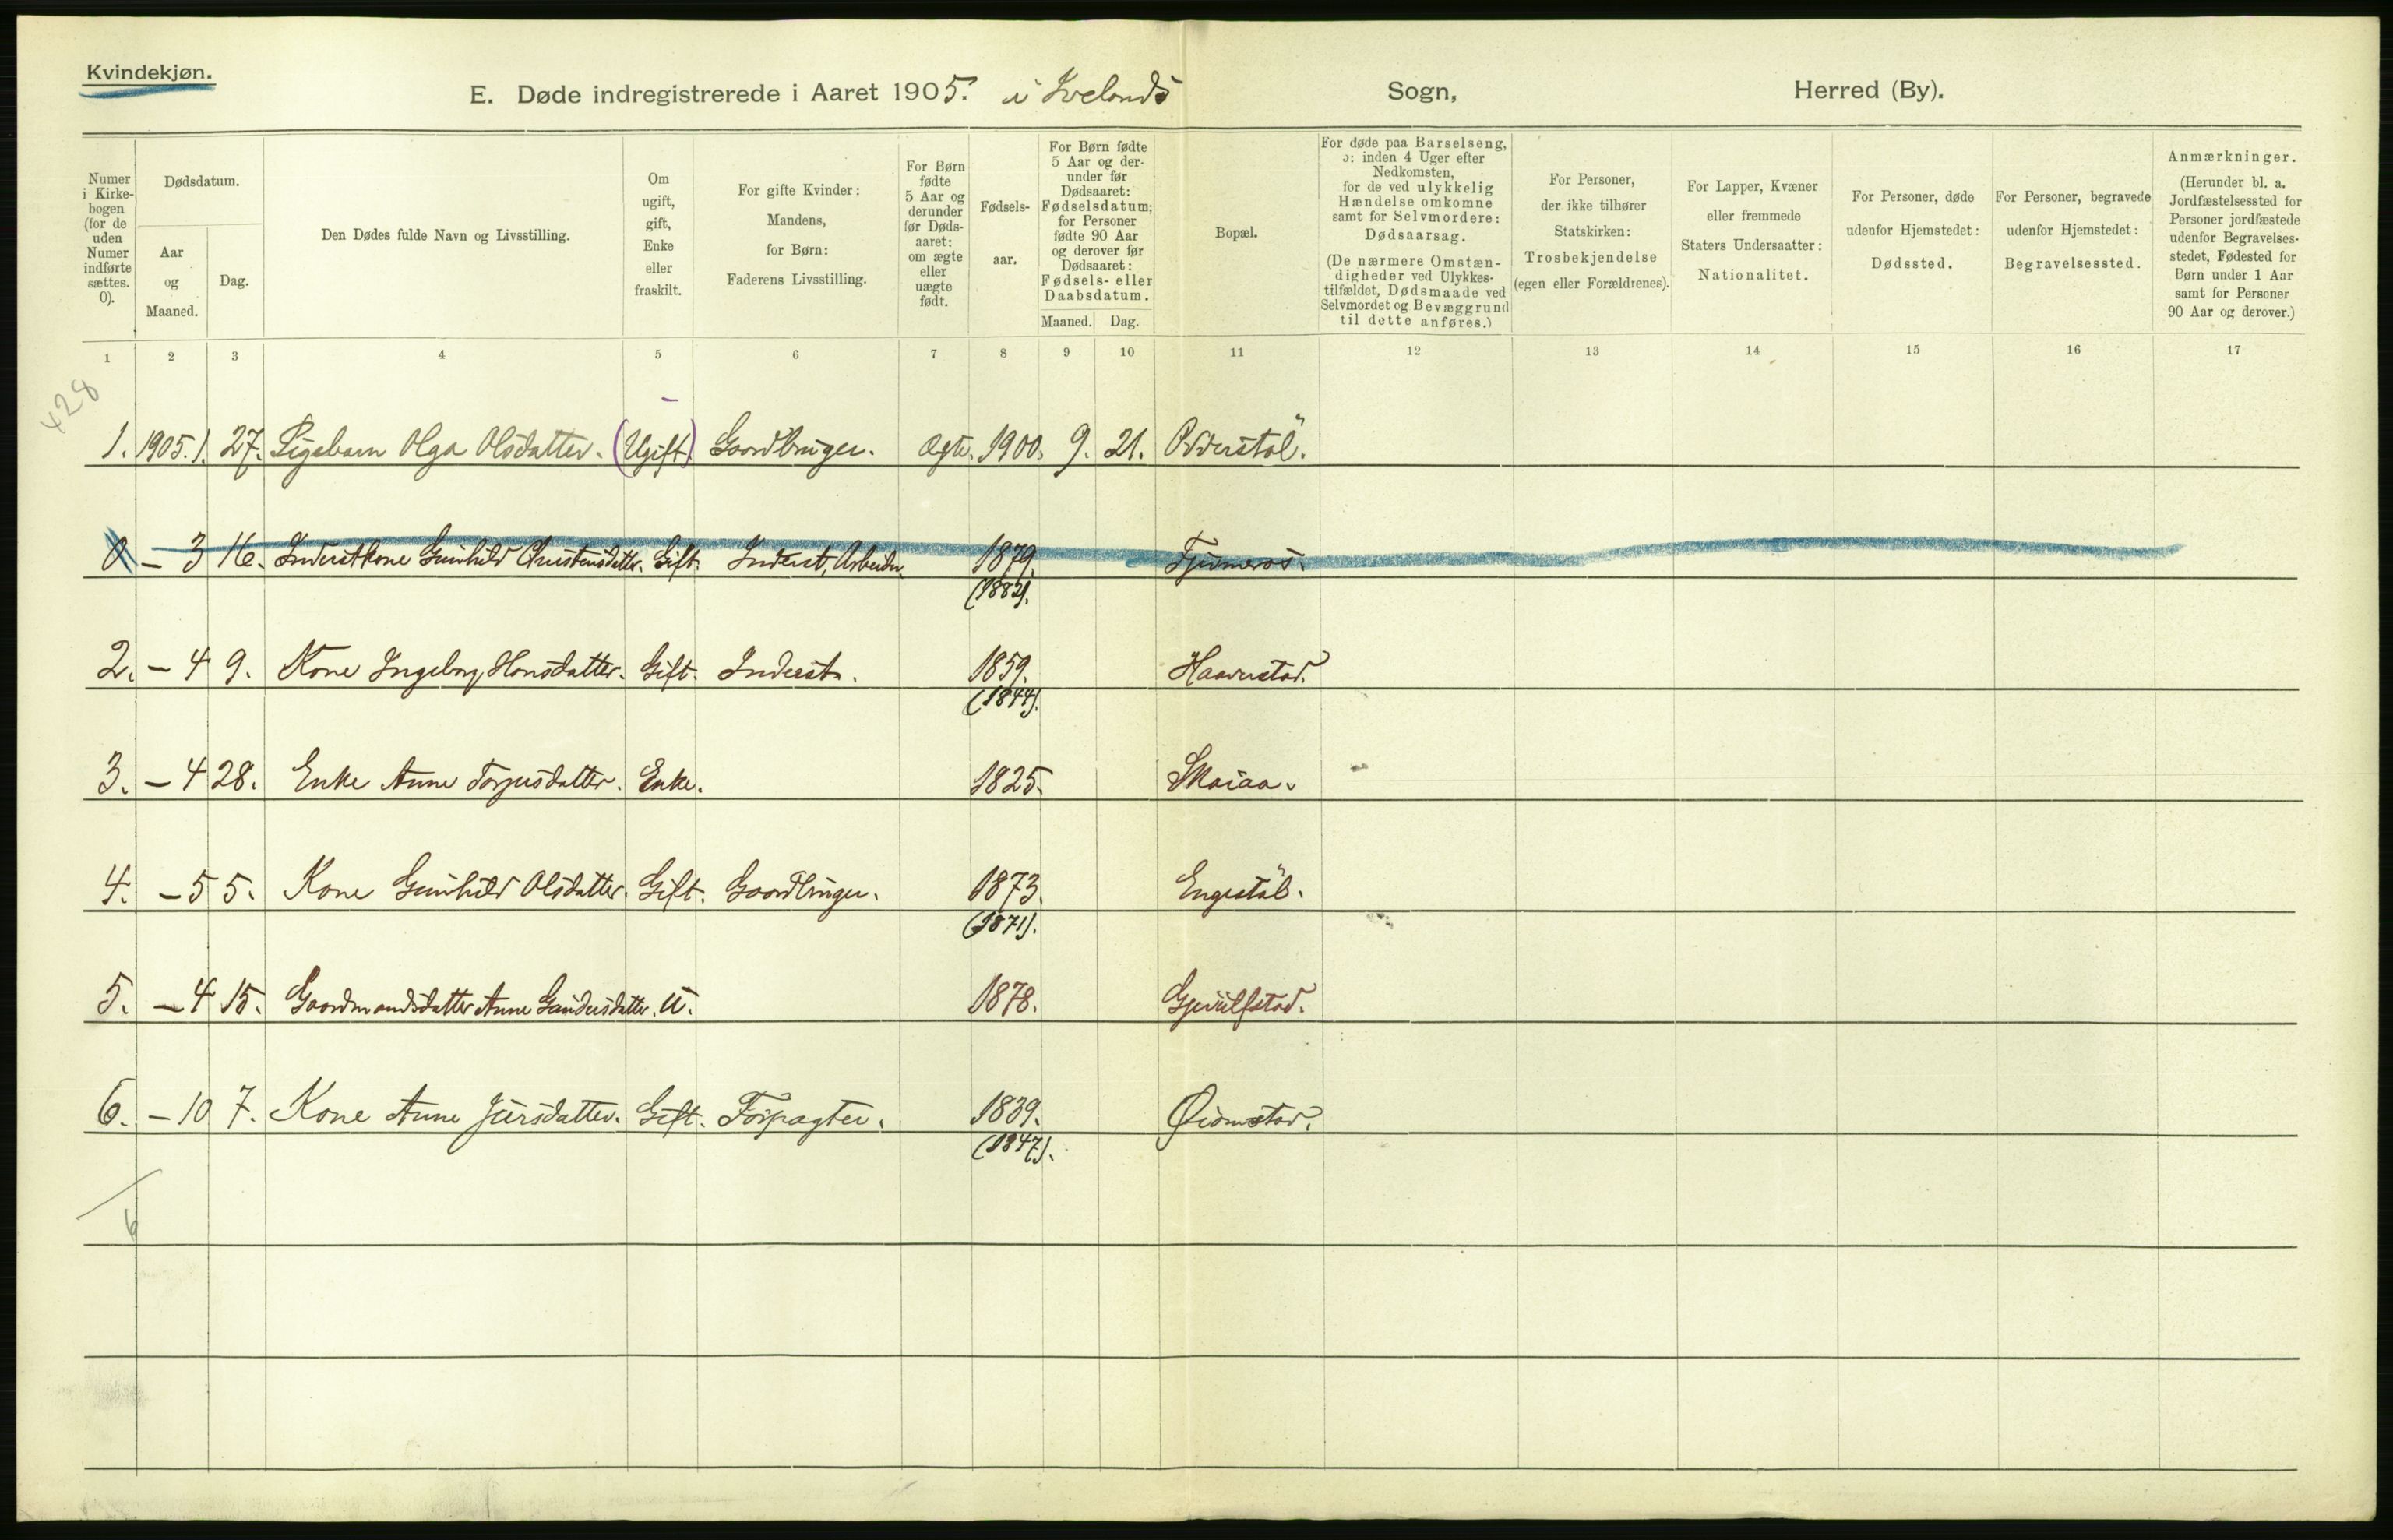 Kvindekjøn.
E. Døde indregistrerede i Aaret 1905. i Ivelands Sogn, Herred (By).
Numer i Kirke-bogen (for de uden Numer indførte sættes. 0).
Dødsdatum.
Aar og Maaned.
Dag.
Den Dødes fulde Navn og Livsstilling.
Om ugift, gift, Enke eller fraskilt.
For gifte Kvinder: Mandens, for Børn: Faderens Livsstilling.
For Børn fødte 5 Aar og derunder før Døds-aaret: om ægte eller uægte født.
Fødsels-aar.
For Børn fødte 5 Aar og der-under før Dødsaaret: Fødselsdatum; for Personer fødte 90 Aar og derover før Dødsaaret: Fødsels- eller Daabsdatum.
Maaned. Dag.
Bopæl.
For døde paa Barselseng, ɔ: inden 4 Uger efter Nedkomsten, for de ved ulykkelig Hændelse omkomne samt for Selvmordere: Dødsaarsag.
(De nærmere Omstæn-digheder ved Ulykkes-tilfældet, Dødsmaade ved Selvmordet og Bevæggrund til dette anføres.)
For Personer, der ikke tilhører Statskirken: Trosbekjendelse (egen eller Forældrenes).
For Lapper, Kvæner eller fremmede Staters Undersaatter: Nationalitet.
For Personer, døde udenfor Hjemstedet: Dødssted.
For Personer, begravede udenfor Hjemstedet: Begravelsessted.
Anmærkninger. (Herunder bl. a. Jordfæstelsessted for Personer jordfæstede udenfor Begravelses-stedet, Fødested for Børn under 1 Aar samt for Personer 90 Aar og derover.)
1 2 3 4 5 6 7 8 9 10 11 12 13 14 15 16 17
428
1. 1905. 1. 27. Pigebarn Olga Olsdatter. (Ugift) Gaardbruger. Ægte. 1900. 9. 21. Odderstöl.
0 – 3 16. Inderstkone Gunhild Christensdatter. Gift. Inderst, Arbeider 1879.
(1882).
2. – 4 9. Kone Ingeborg Hansdatter. Gift. Inderst. 1859. Haaverstad.
(1844).
3. – 4 28. Enke Anne Torjusdatter. Enke. 1825. Skaiaa.
4. – 5 5. Kone Gunhild Olsdatter. Gift. Gaardbruger. 1873. Engestöl.
(1871).
5. – 4 15. Gaardmandsdatter Anne Gundersdatter. U. 1878. Gjevulfstad.
6. – 10 7. Kone Anne Jursdatter. Gift. Forpagter. 1839.
(1847).
6